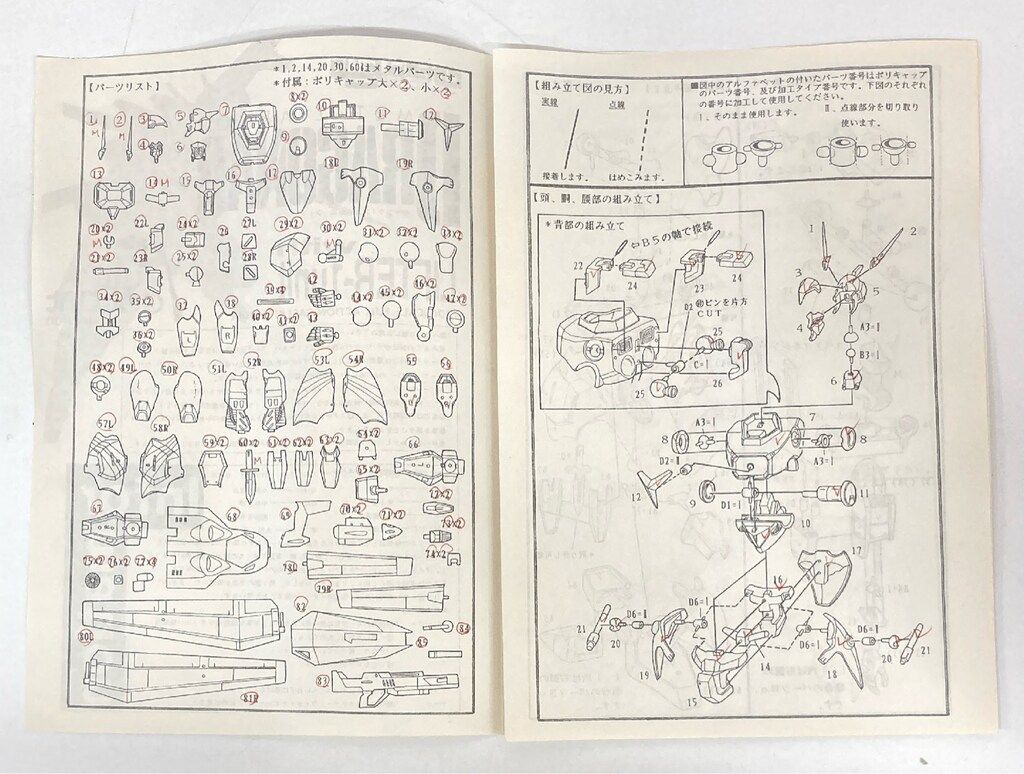 【パーツリスト】
*1,2,14,20,30,60はメタルパーツです。
*付属：ポリキャップ大×②、小×③
1 M
2 M
3
4
5
6
7
8×2
9
10
11
12
13
14 M
15
16
17
18L
19R
20×2 M
21×2
22L
23R
24×2
25×2
26
27L
28R
29×2
30×2 M
31×2
32×2
33×2
34×2
35×2
36×2
37 L
38 R
39×4
40×2
41×2
42
43
44×2
45×2
46×2
47×2
48×2
49L
50R
51L
52R
53L
54R
55
56
57L
58R
59×2
60×2 M
61×2
62×2
63×2
64×2
65×2
66
67
68
69
70×2
71×2
72×2
73×2
74×2
75×2
76×2
77×4
78L
79R
80L
81R
82
83
84
85
【組み立て図の見方】
実線
点線
接着します。
はめこみます。
■図中のアルファベットの付いたパーツ番号はポリキャップ
のパーツ番号、及び加工タイプ番号です。下図のそれぞれ
の番号に加工して使用してください。
Ⅰ、そのまま使用します。
Ⅱ、点線部分を切り取り
使います。
【頭、胴、腰部の組み立て】
*背部の組み立て
⇦B5の軸で接続
22
24
23
24
D2
㊥ピンを片方
CUT
25
C=Ⅰ
25
26
1
2
3
4
5
A3=Ⅰ
B3=Ⅰ
6
7
8
A3=Ⅰ
8
A3=Ⅰ
D2=Ⅱ
12
9
D1=Ⅰ
11
10
17
16
D6=Ⅱ
21
20
19
D6=Ⅰ
D6=Ⅰ
D6=Ⅱ
20
21
14
15
18